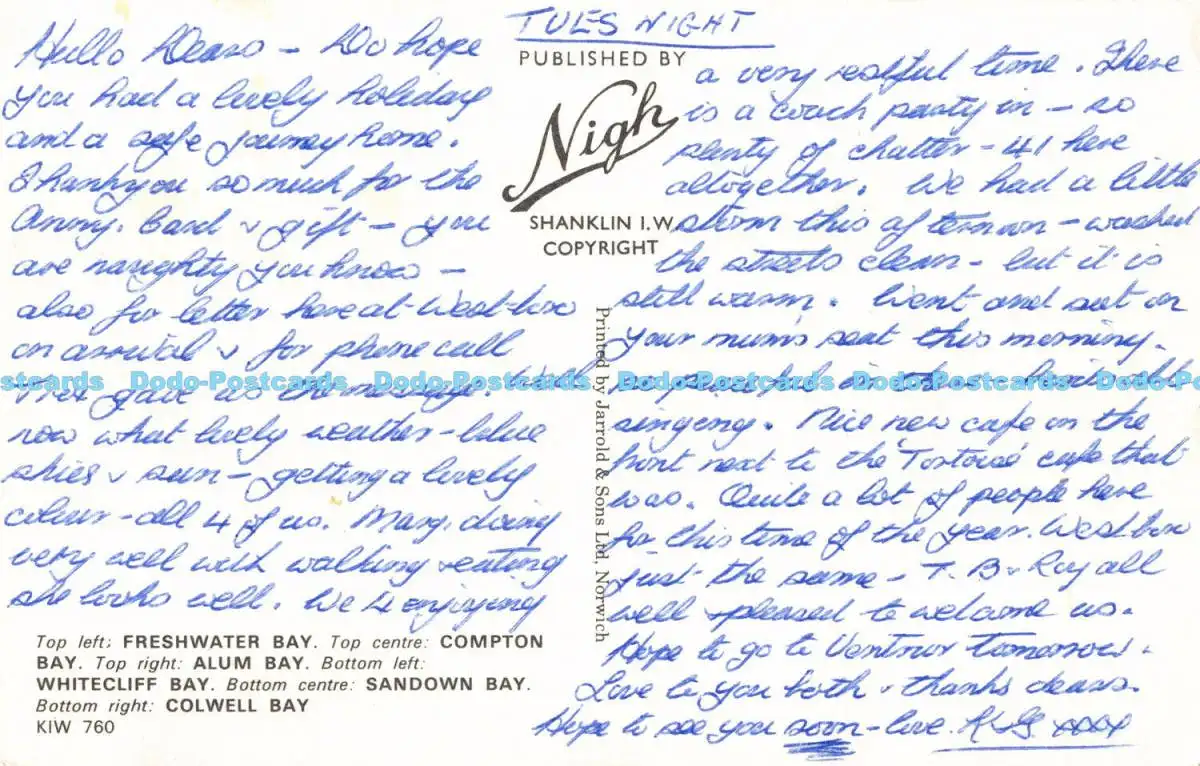 TUES NIGHT
Hello Dears - Do hope
you had a lovely holiday
and a safe journey home.
Thankyou so much for the
Anny. Card & gift - you
are naughty you know -
also for letter here at West-
on arrival & for phone call
gave us the message.
now what lovely weather - blue
skies & sun - getting a lovely
colour - all 4 of us. Marg. doing
very well with walking & eating
she looks well. We 4 enjoying
PUBLISHED BY
Nigh
SHANKLIN I.W.
COPYRIGHT
a very restful time. There
is a coach party in - so
plenty of chatter - 41 here
altogether. We had a little
storm this afternoon - washed
the streets clean - but it is
still warm. Went and sat on
your mum's seat this morning.
singing. Nice new cafe on the
front next to the 'Tortoise' cafe that
was. Quite a lot of people here
for this time of the year. West
just the same - T. B & Roy all
well & pleased to welcome us.
Hope to go to Ventnor tomorrow.
Love to you both & thanks dears.
Hope to see you soon - love. K & G. xxxx
Printed by Jarrold & Sons Ltd, Norwich
Top left: FRESHWATER BAY. Top centre: COMPTON
BAY. Top right: ALUM BAY. Bottom left:
WHITECLIFF BAY. Bottom centre: SANDOWN BAY.
Bottom right: COLWELL BAY
KIW 760
ostcards Dodo-Postcards Dodo-Postcards Dodo-Postcards Dodo-Postcards